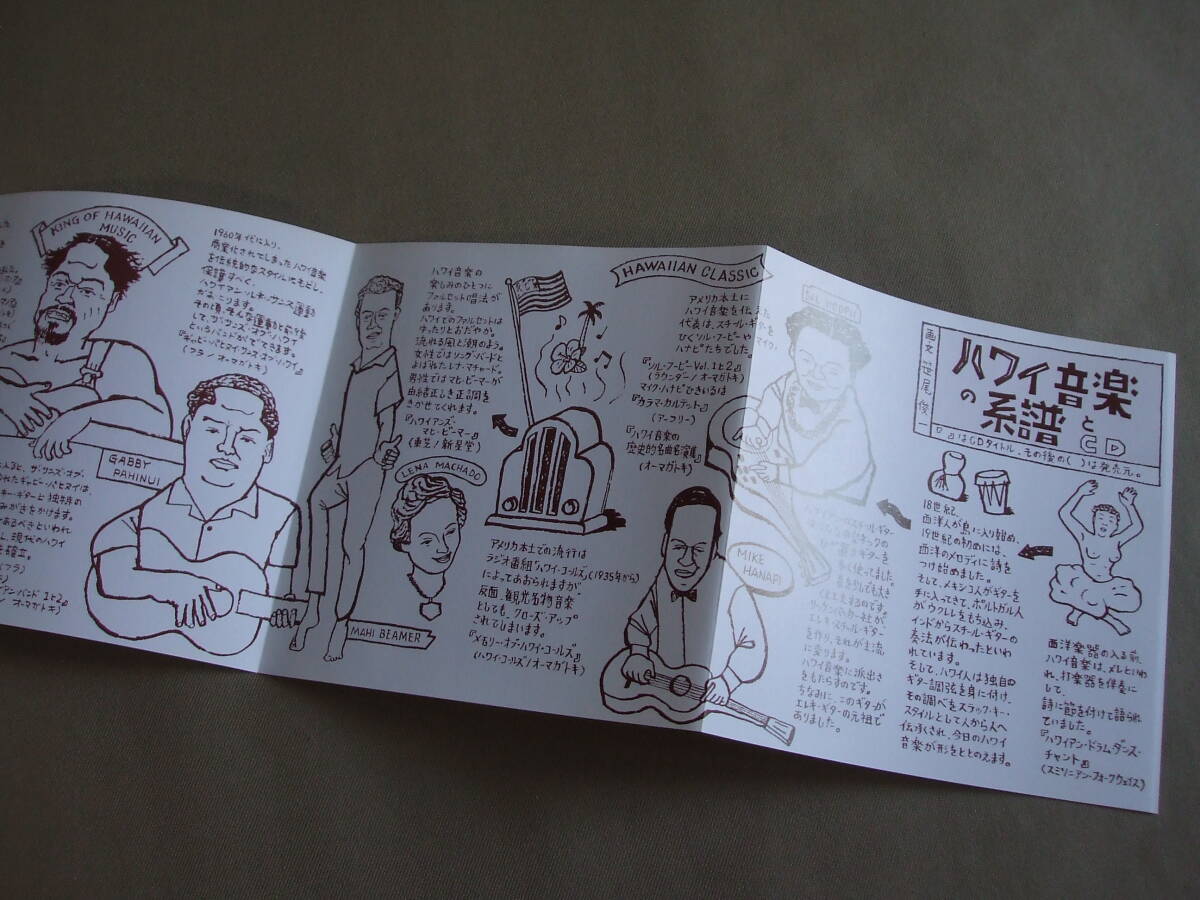 ハワイ音楽
の系譜と
CD
画文 笹尾俊一
『 』はCDタイトル、その後の( )は発売元。
西洋楽器の入る前、
ハワイ音楽は、メレといわ
れ、打楽器を伴奏に
して、
詩に節を付けて語られ
ていました。
『ハワイアン・ドラム・ダンス・
チャント』
(スミソニアン・フォークウェイズ)
18世紀、
西洋人が島に入り始め、
19世紀の初めには、
西洋のメロディに詩を
つけ始めました。
そして、メキシコ人がギターを
手に入ってきて、ポルトガル人
がウクレレをもち込み、
インドからスチール・ギターの
奏法が伝わったといわ
れています。
そして、ハワイ人は独自の
ギター調弦を身に付け、
その調べをスラック・キー・
スタイルとして人から人へ
伝承され、今日のハワイ
音楽が形をととのえます。
リッケンバッカー社が
エレキ・スチール・ギター
を作り、それが主流
に変ります。
ハワイ音楽に派出さ
をもたらすのです。
ちなみに、このギターが
エレキ・ギターの元祖で
ありました。
HAWAIIAN CLASSIC
アメリカ本土に
ハワイ音楽を伝えた
代表は、スチール・ギターを
ひくソル・フーピーや マイク・
ハナピたちでした。
『ソル・フーピー Vol.1と2』
(ラウンダー/オーマガトキ)
マイク・ハナピひきいるは
『カラマ・カルテット』
(アーフリー)
『ハワイ音楽の
歴史的名曲名演集』
(オーマガトキ)
MIKE
HANAPI
アメリカ本土での流行は
ラジオ番組「ハワイ・コールズ」(1935年から)
によってあおられますが、
反面、観光名物音楽
としても、クローズ・アップ
されてしまいます。
『メモリー・オブ・ハワイ・コールズ』
(ハワイ・コールズ/オーマガトキ)
ハワイ音楽の
楽しみのひとつに
ファルセット唱法が
あります。
ハワイでのファルセットは
ゆったりとおだやかな
流れる風と潮のよう。
女性ではソング・バードと
よばれたレナ・マチャード。
男性ではマヒ・ビーマーが
由緒正しき正調を
きかせてくれます。
『ハワイアンズ・
マヒ・ビーマー』
(東芝/新星堂)
LENA MACHADO
MAHI BEAMER
1960年代に入り、
商業化されてしまったハワイ音楽
を伝統的なスタイルにもどし、
保護すべく、
ハワイアン・ルネッサンス運動
がおこります。
その頃、そんな運動と前後
して、サンズ・オブ・ハワイ
というバンドがでてきます。
(フラ/オーマガトキ)
KING OF HAWAIIAN
MUSIC
GABBY
PAHINUI